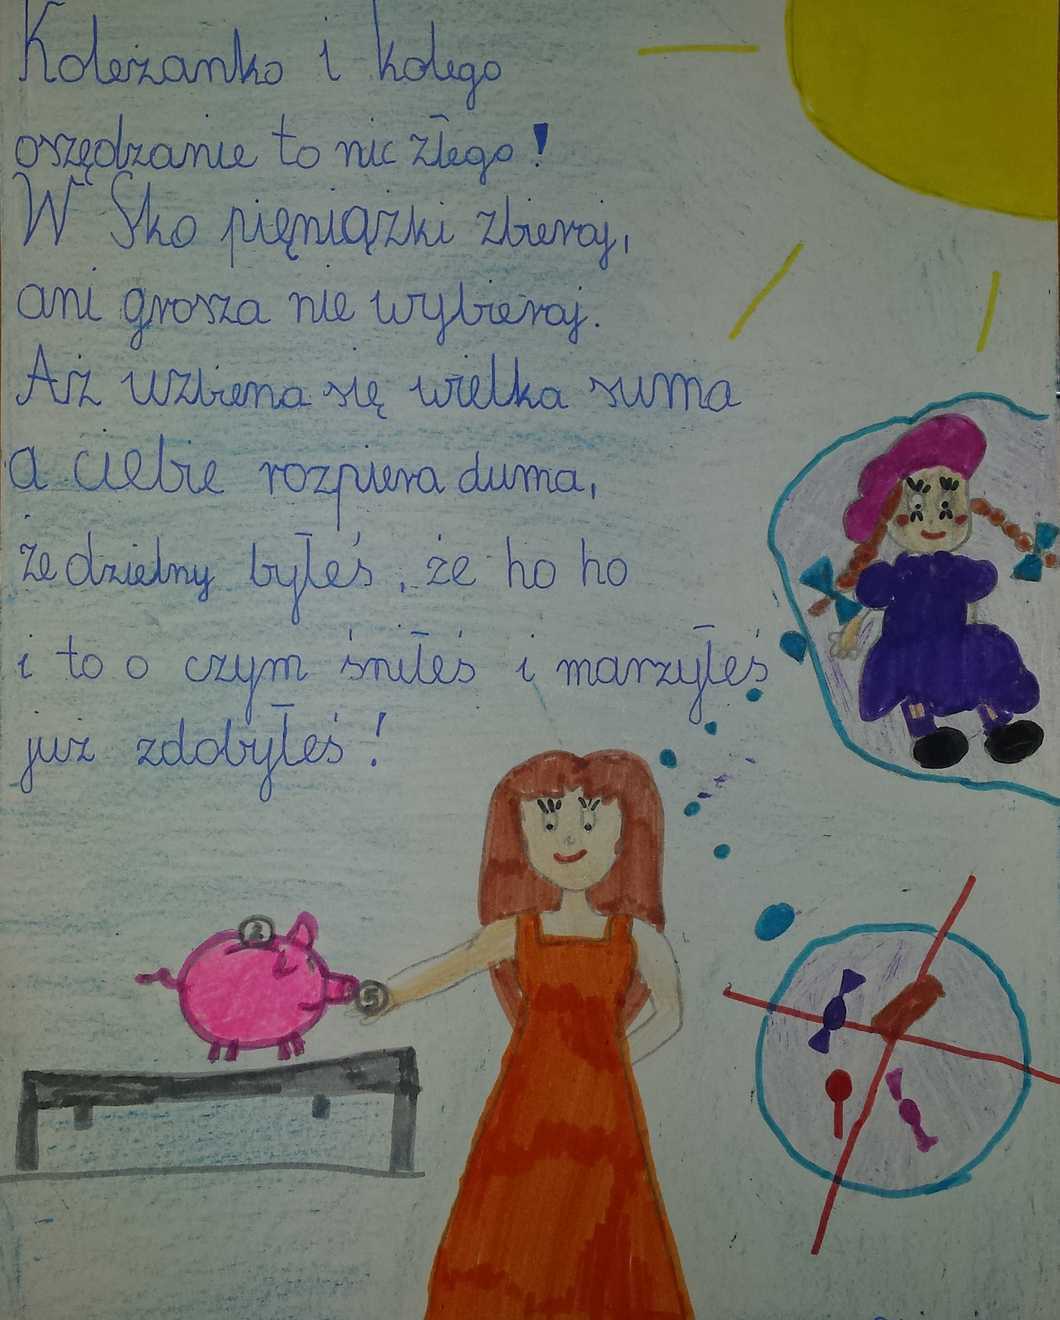 Koleżanko i kolego
oszczędzanie to nic złego!
W Sko pieniążki zbieraj,
ani grosza nie wybieraj.
Aż uzbiera się wielka suma
a ciebie rozpiera duma,
że dzielny byłeś, że ho ho
i to o czym śniłeś i marzyłeś
już zdobyłeś!
2
5